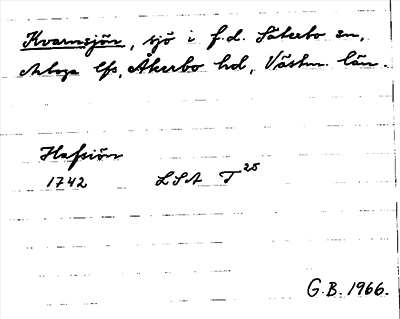 Kvarnsjön, sjö i f.d. Säterbo sn,
Arboga lfs, Åkerbo hd, Västm. län.
Hafsiön
1742 LSA T 25
G.B. 1966.